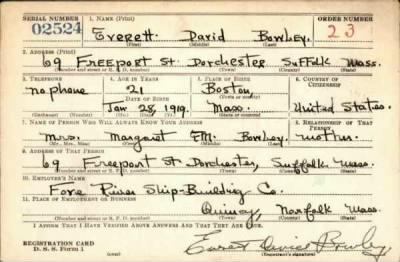 SERIAL NUMBER 1. NAME (Print) ORDER NUMBER
02524 Everett David Bowley. 23
(First) (Middle) (Last)
2. ADDRESS (Print)
69 Freeport St. Dorchester Suffolk Mass.
(Number and street or R. F. D. number) (Town) (County) (State)
3. TELEPHONE 4. AGE IN YEARS 5. PLACE OF BIRTH 6. COUNTRY OF CITIZENSHIP
no phone 21 Boston
DATE OF BIRTH
Jan 28, 1919. Mass. United States.
(Mo.) (Day) (Yr.) (State or country)
7. NAME OF PERSON WHO WILL ALWAYS KNOW YOUR ADDRESS 8. RELATIONSHIP OF THAT PERSON
Mrs. Margaret M. Bowley mother.
(Mr., Mrs., Miss) (First) (Middle) (Last)
9. ADDRESS OF THAT PERSON
69 Freeport St. Dorchester, Suffolk Mass.
(Number and street or R. F. D. number) (Town) (County) (State)
10. EMPLOYER'S NAME
Fore River Ship-Building Co.
11. PLACE OF EMPLOYMENT OR BUSINESS
Quincy, Norfolk Mass.
(Number and street or R. F. D. number) (Town) (County) (State)
I AFFIRM THAT I HAVE VERIFIED ABOVE ANSWERS AND THAT THEY ARE TRUE.
REGISTRATION CARD
D. S. S. Form 1 Everett David Bowley
(Registrant's signature)